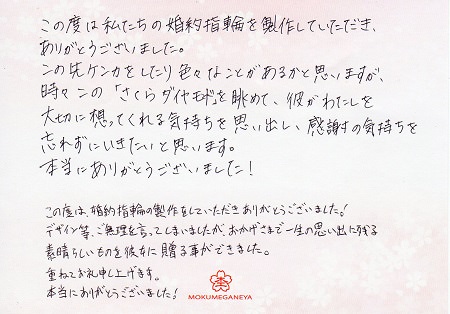 この度は私たちの婚約指輪を製作していただき、
ありがとうございました。
この先ケンカをしたり色々なことがあるかと思いますが、
時々この「さくらダイヤモンド」を眺めて、彼がわたしを
大切に想ってくれる気持ちを思い出し、感謝の気持ちを
忘れずにいきたいと思います。
本当にありがとうございました!
この度は、婚約指輪の製作をしていただきありがとうございました!
デザイン等、ご無理を言ってしまいましたが、おかげさまで一生の思い出に残る
素晴らしいものを彼女に贈る事ができました。
重ねてお礼申し上げます。
本当にありがとうございました!
MOKUMEGANEYA